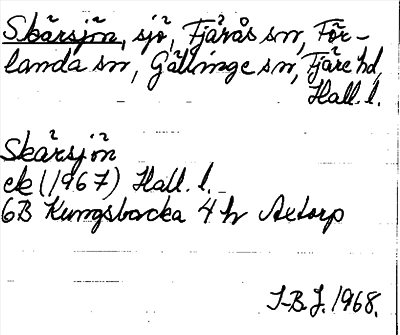 Skärsjön, sjö, Fjärås sn, För-
landa sn, Gällinge sn, Fjäre hd,
Hall. l.
Skärsjön
ek (1967) Hall. l.
6B Kungsbacka 4 h Axtorp
I-B.J. 1968.